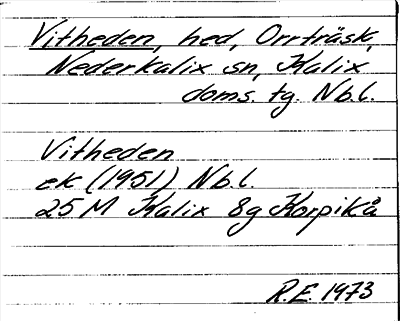 Vitheden, hed, Orrträsk,
Nederkalix sn, Kalix
doms. tg. Nb.l.
Vitheden
ek (1951) Nb.l.
25 M Kalix 8g Korpikå
R.E. 1973